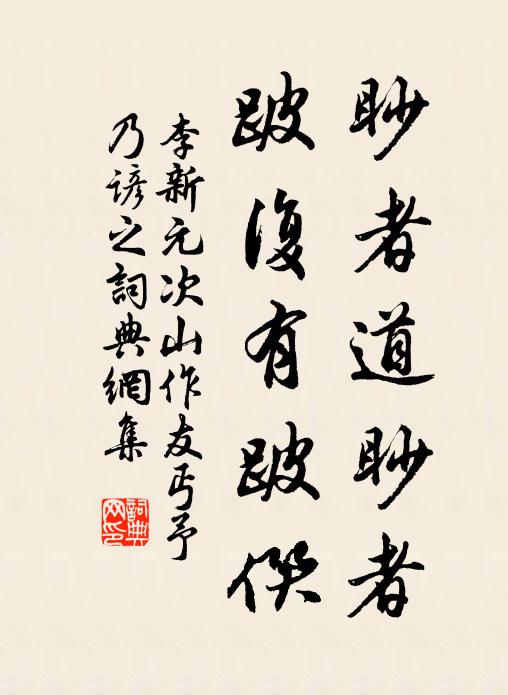 眇者道眇者
跛復有跛僕
李新元次山作友丐予
乃諺之詞典網集
詞典
网印